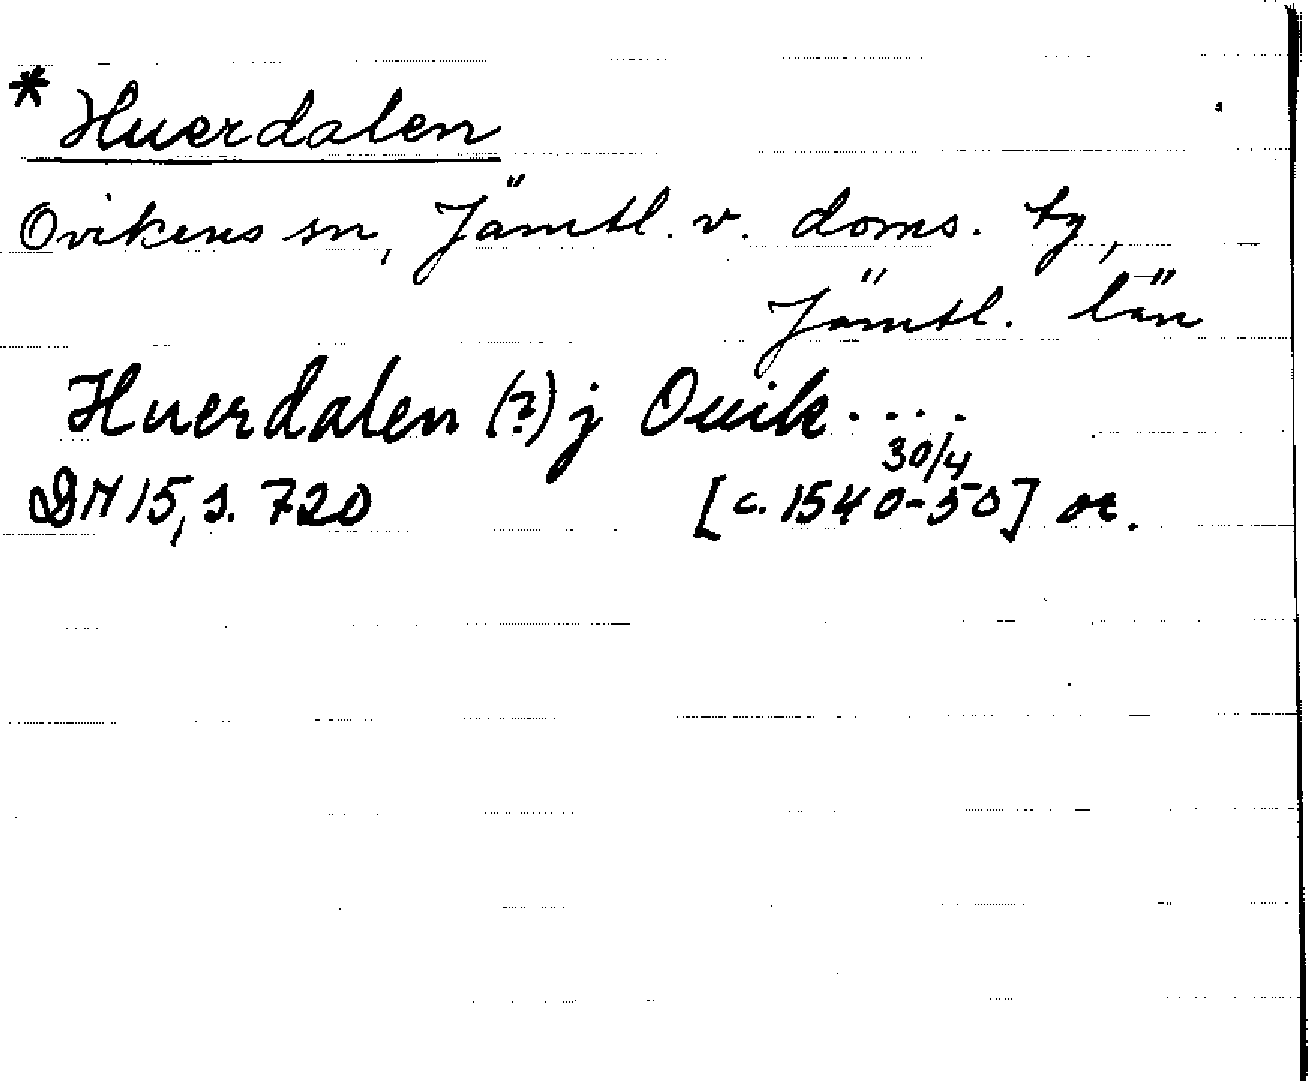 * Huerdalen
Ovikens sn, Jämtl. v. doms. tg,
Jämtl. län
Huerdalen (?) j Ouik....
30/4
DN 15, s. 720 [c. 1540-50] or.